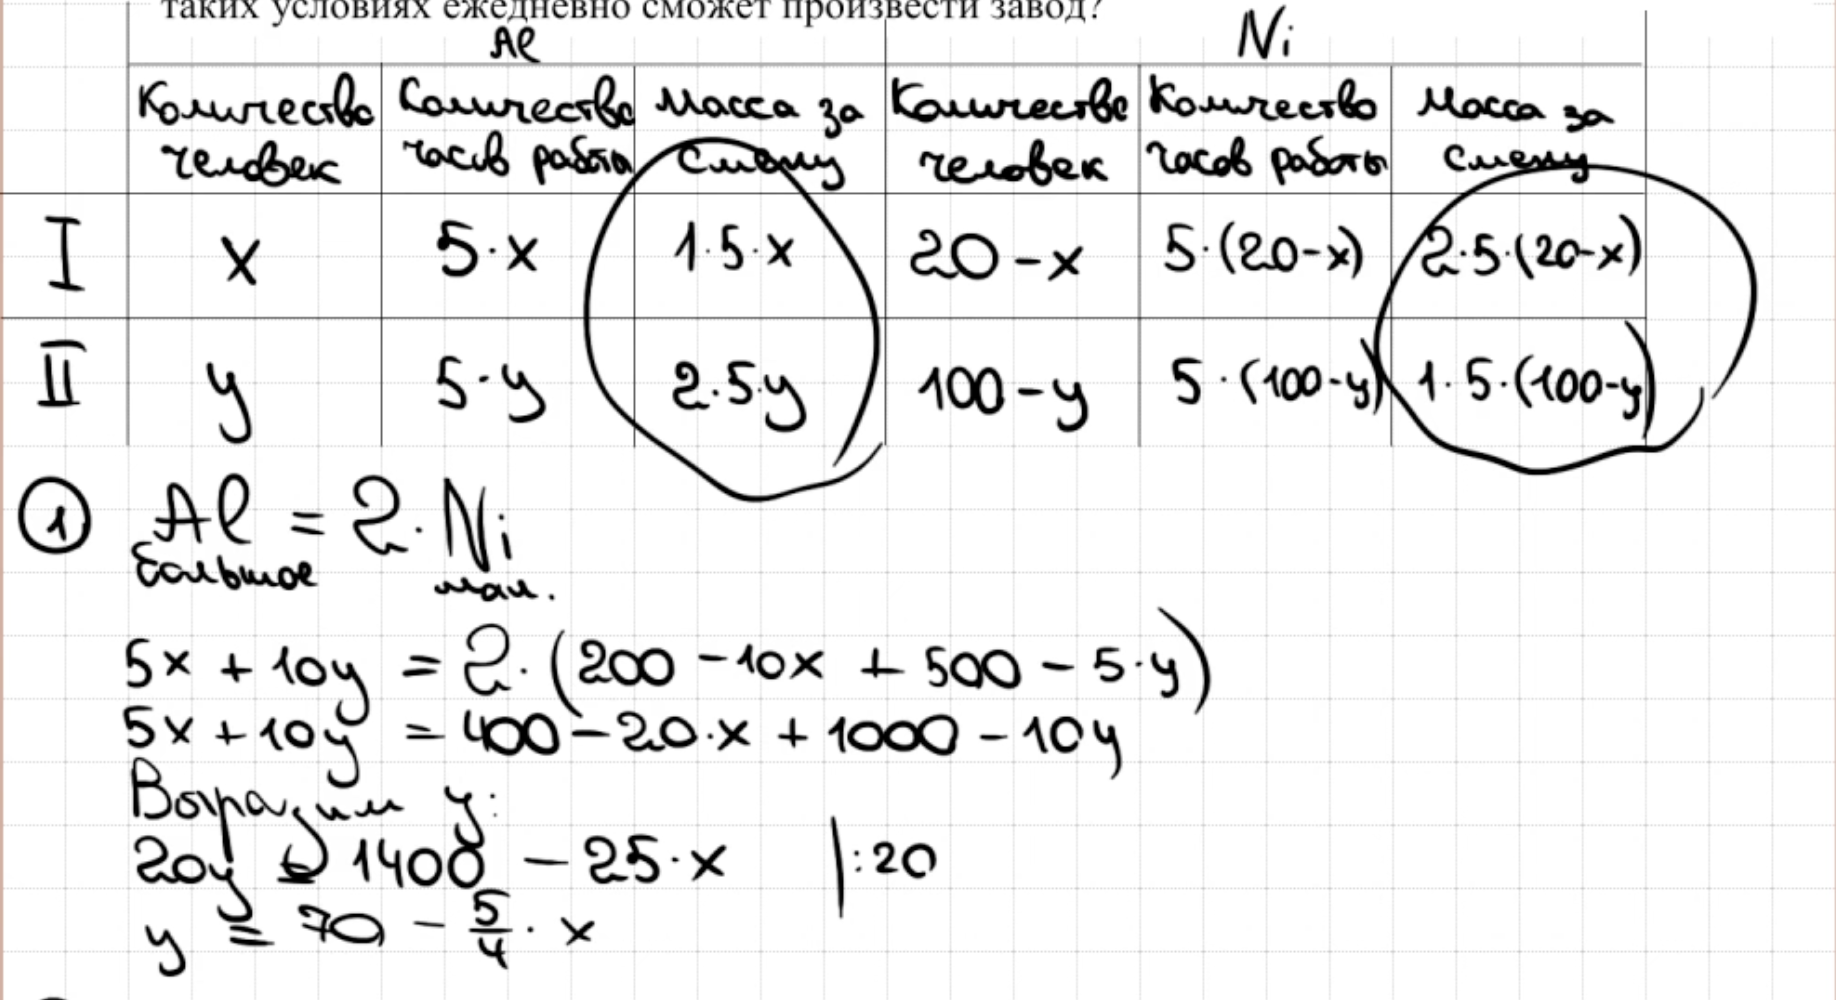 таких условиях ежедневно сможет произвести завод?
Al Ni
Количество человек Количество часов работы Масса за смену Количество человек Количество часов работы Масса за смену
I x 5·x 1·5·x 20-x 5·(20-x) 2·5·(20-x)
II y 5·y 2·5·y 100-y 5·(100-y) 1·5·(100-y)
1 Al = 2·Ni
большое мал.
5x + 10y = 2·(200 - 10x + 500 - 5·y)
5x + 10y = 400 - 20·x + 1000 - 10y
Выразим y:
20y = 1400 - 25·x |:20
y = 70 - 5/4 · x